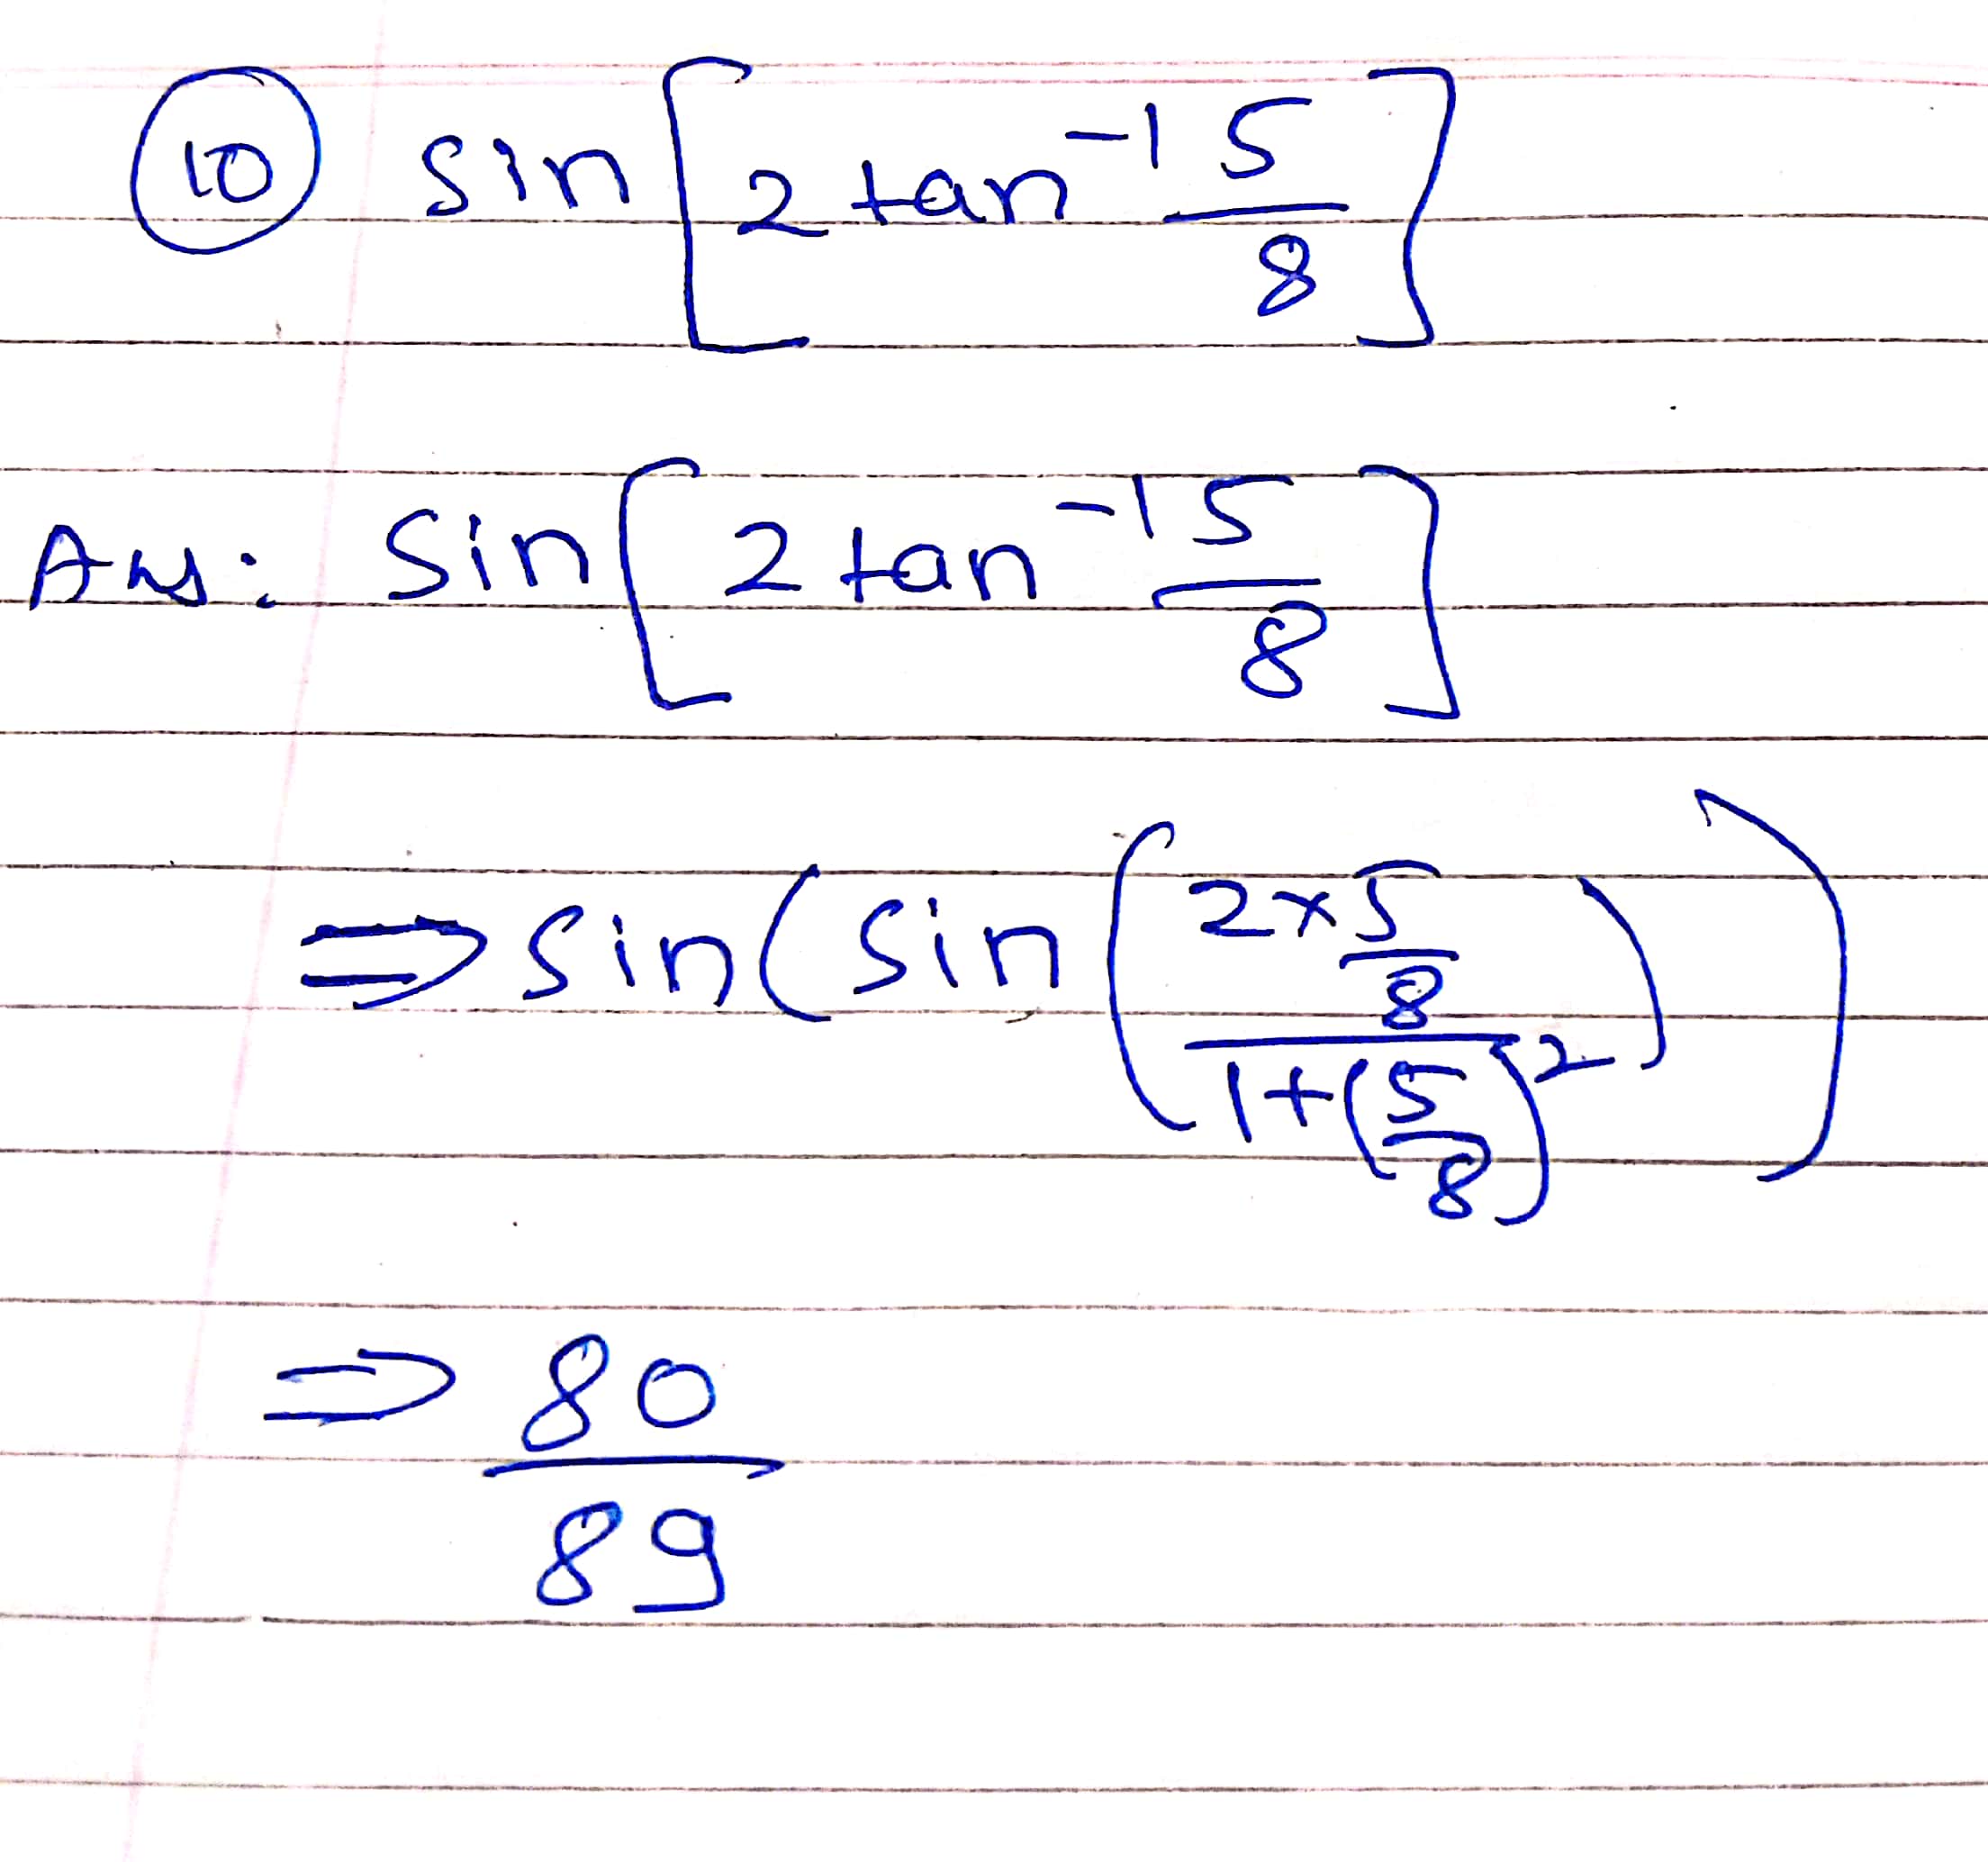 10 sin [2 tan⁻¹ 5/8]
Ans: Sin [2 tan⁻¹ 5/8]
⇒ sin( sin ( (2×5/8) / (1+(5/8)²) ) )
⇒ 80/89